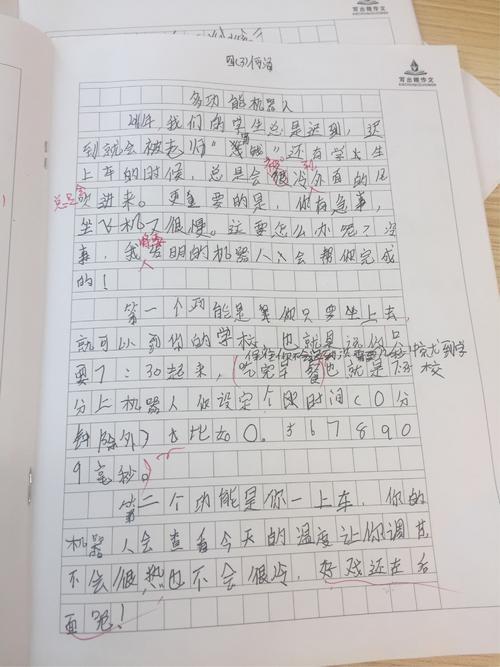 写出糖作文
写出糖作文
多功能机器人
我们的学生总是迟到，迟
到就会被老师“ ”还有学生
上车的时候，总是会很冷，外面的风
总是会
吹进来。更重要的是，你有急事，
坐飞机又很慢。这要怎么办呢？没
事，我发明的机器人会帮你完成
的！
第一个功能是你只要坐上去，
就可以到你的学校，也就是说你只
要7：30起来，（吃完早餐）也就是
分上机器人你设定个时间（0分
钟除外）比如0。567890
9毫秒。
第二个功能是你一上车，你的
机器人会查看今天的温度让你调，
不会很热也不会很冷，好戏还在后
面呢！